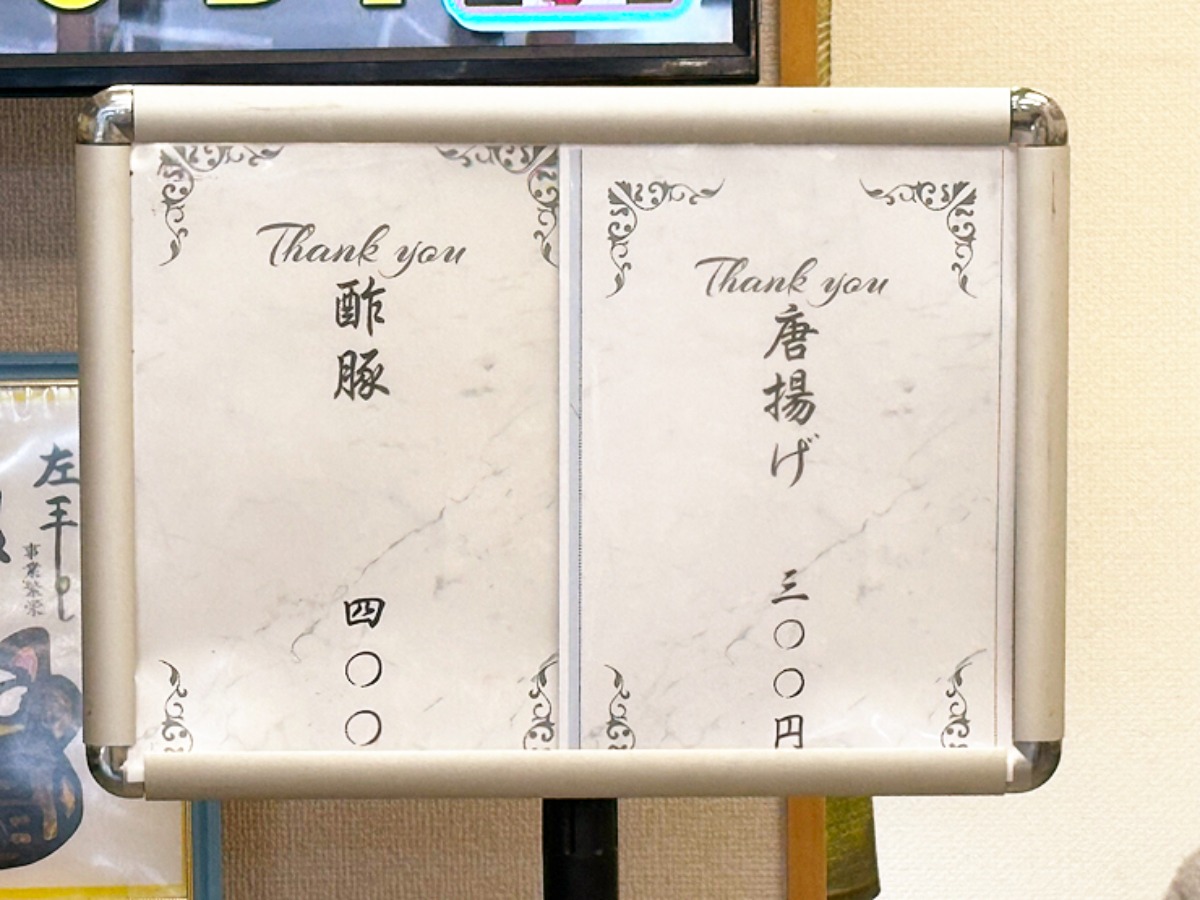 Thank you
酢豚
四〇〇
Thank you
唐揚げ
三〇〇円
左手
事業繁栄